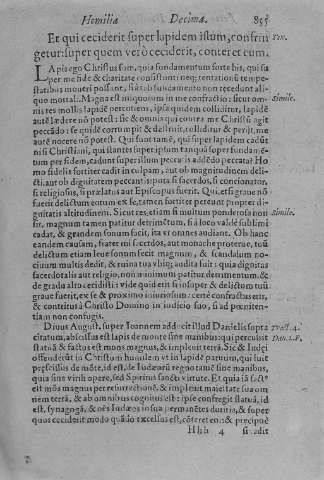 Homilia Decima. 855
Et qui ceciderit super lapidem istum, confrin
getur: super quem verò ceciderit, conteret eum.
LApis ego Christus sum, quia fundamentum forte his, qui su
per me fide & charitate consistunt: neq; tentationũ tempe-
statibus moueri possunt, si à tali fundamento non recedunt ali-
quo mortali. Magna est iniquorum in me confractio: sicut om-
nis res mollis lapidẽ percutiens, ipsa quidẽ colliditur, lapidẽ
autẽ lædere nõ potest: sic & omnis qui contra me Christũ agit
peccãdo: se quidẽ corrumpit & destruit, colliditur & perijt, me
autẽ nocere nõ potest. Qui sunt tamẽ, qui super lapidem cadũt
nisi Christiani, qui stantes super ipsum tanquã super fundamẽ-
tum per fidem, cadunt super illum per actus addẽdo peccata? Ho
mo fidelis fortiter cadit in culpam, aut ob magnitudinem deli-
cti, aut ob dignitatem peccantis: puta si sacerdos, si concionator,
si religiosus, si prælatus aut Episcopus fuerit. Qui, etsi graue nõ
fuerit delictum entum ex se, tamen fortiter pereunt propter di-
gnitatis altitudinem. Sicut res, etiam si multum ponderosa non
sit, magnum tamen patitur detrimẽtum, si à loco valdè sublimi
cadat, & grandem sonum facit, ita vt omnes audiant. Ob hanc
eandem causam, frater mi sacerdos, aut monache proterue, tuũ
delictum etiam leue sonum fecit magnum, & scandalum no-
ciuum multis dedit, & ruina tua vbiq; audita fuit: quia dignitas
sacerdotalis aut religio, non minimum patitur detrimentum, &
de gradu alto cecidisti: vide quid erit si insuper & delictum tuũ
graue fuerit, ex se & proximo iniuriosum: certè confractus eris,
& conteritur à Christo Domino in iudicio suo, si ad pœniten-
tiam non confugis.
Diuus August. super Ioannem adducit illud Danielis supra
citatum, abscissus est lapis de monte sine manibus: qui percussit
statuã & factus est mons magnus, & impleuit terrã. Sic & Iudęi
offenderũt in Christum humilem vt in lapidẽ paruum, qui fuit
pręscissus de mõte, id est, de Iudæorũ regno tamẽ sine manibus,
quia sine virili opere, sed Spiritus sancti virtute. Et quia iã factus
est mõs magnus per resurrectionẽ, & impleuit maiestate sua om
nem terrã, & ab omnibus cognitus est: ipse confregit statuã, id
est, synagogã, & oẽs Iudæos in sua permanẽtes duritia, & super
quos ceciderit modo quẽdã excelsus est, cõteret eos: & præcipuè
Hhh 4 si